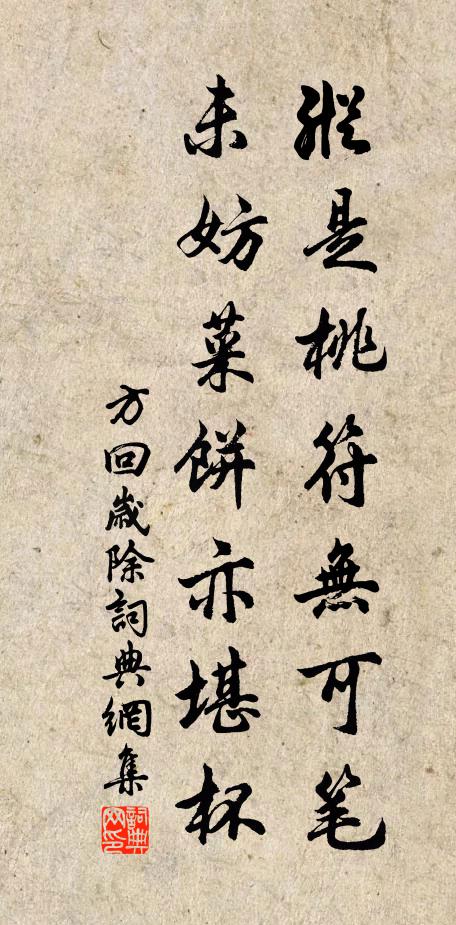 縱是桃符無可笔
未妨菜餅亦堪杯
方回歲除詞典網集
詞典网印